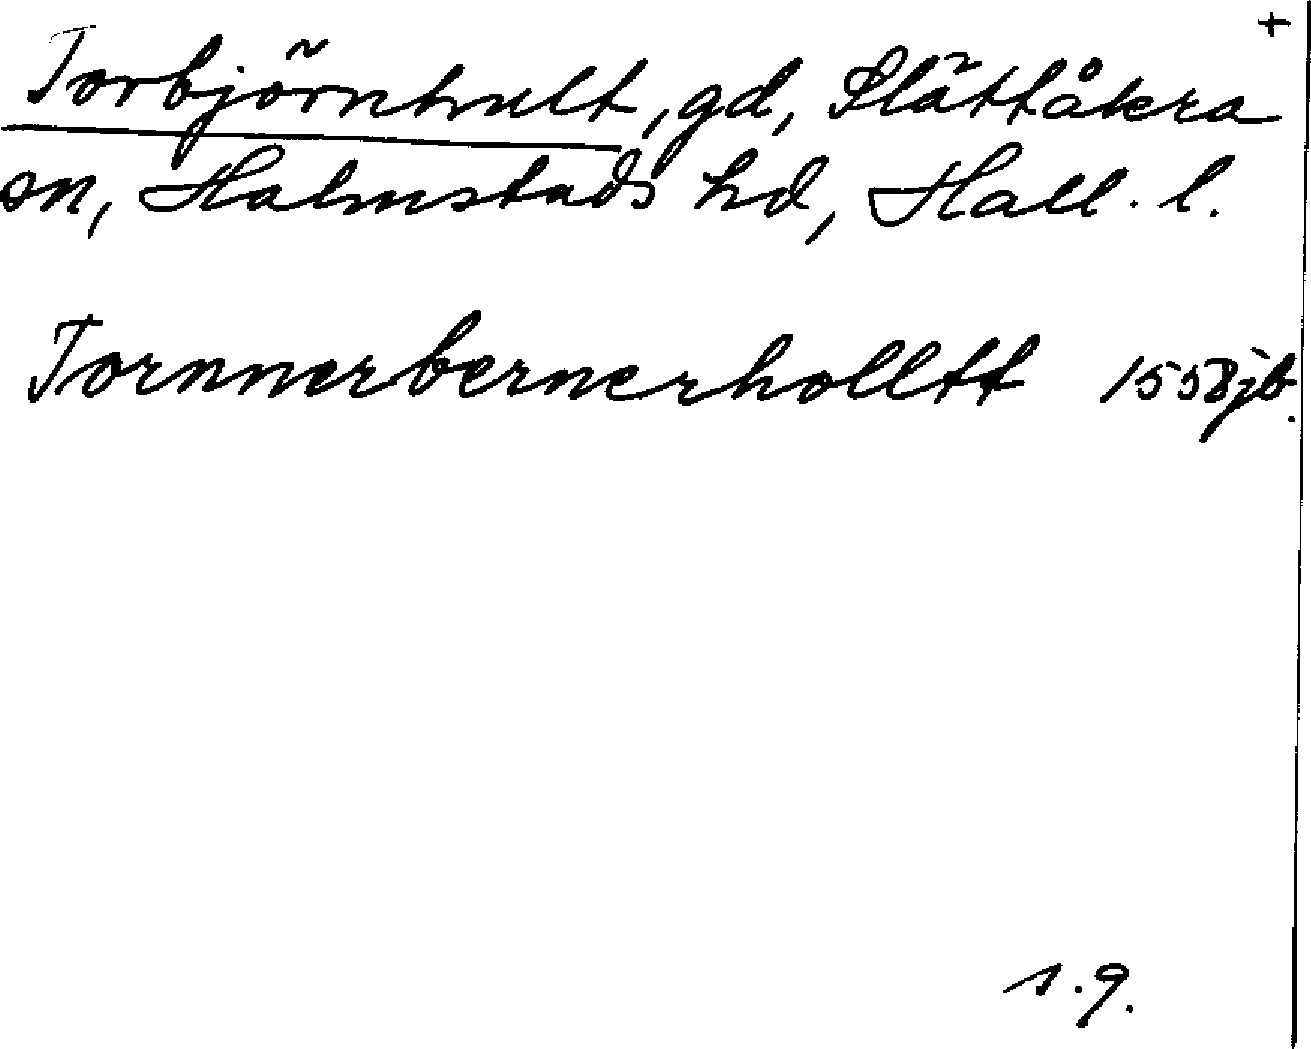 +
Torbjörnhult, gd, Slättåkra
sn, Halmstads hd, Hall. l.
Tornnerbernerholltt 1558 jb.
s. 9.